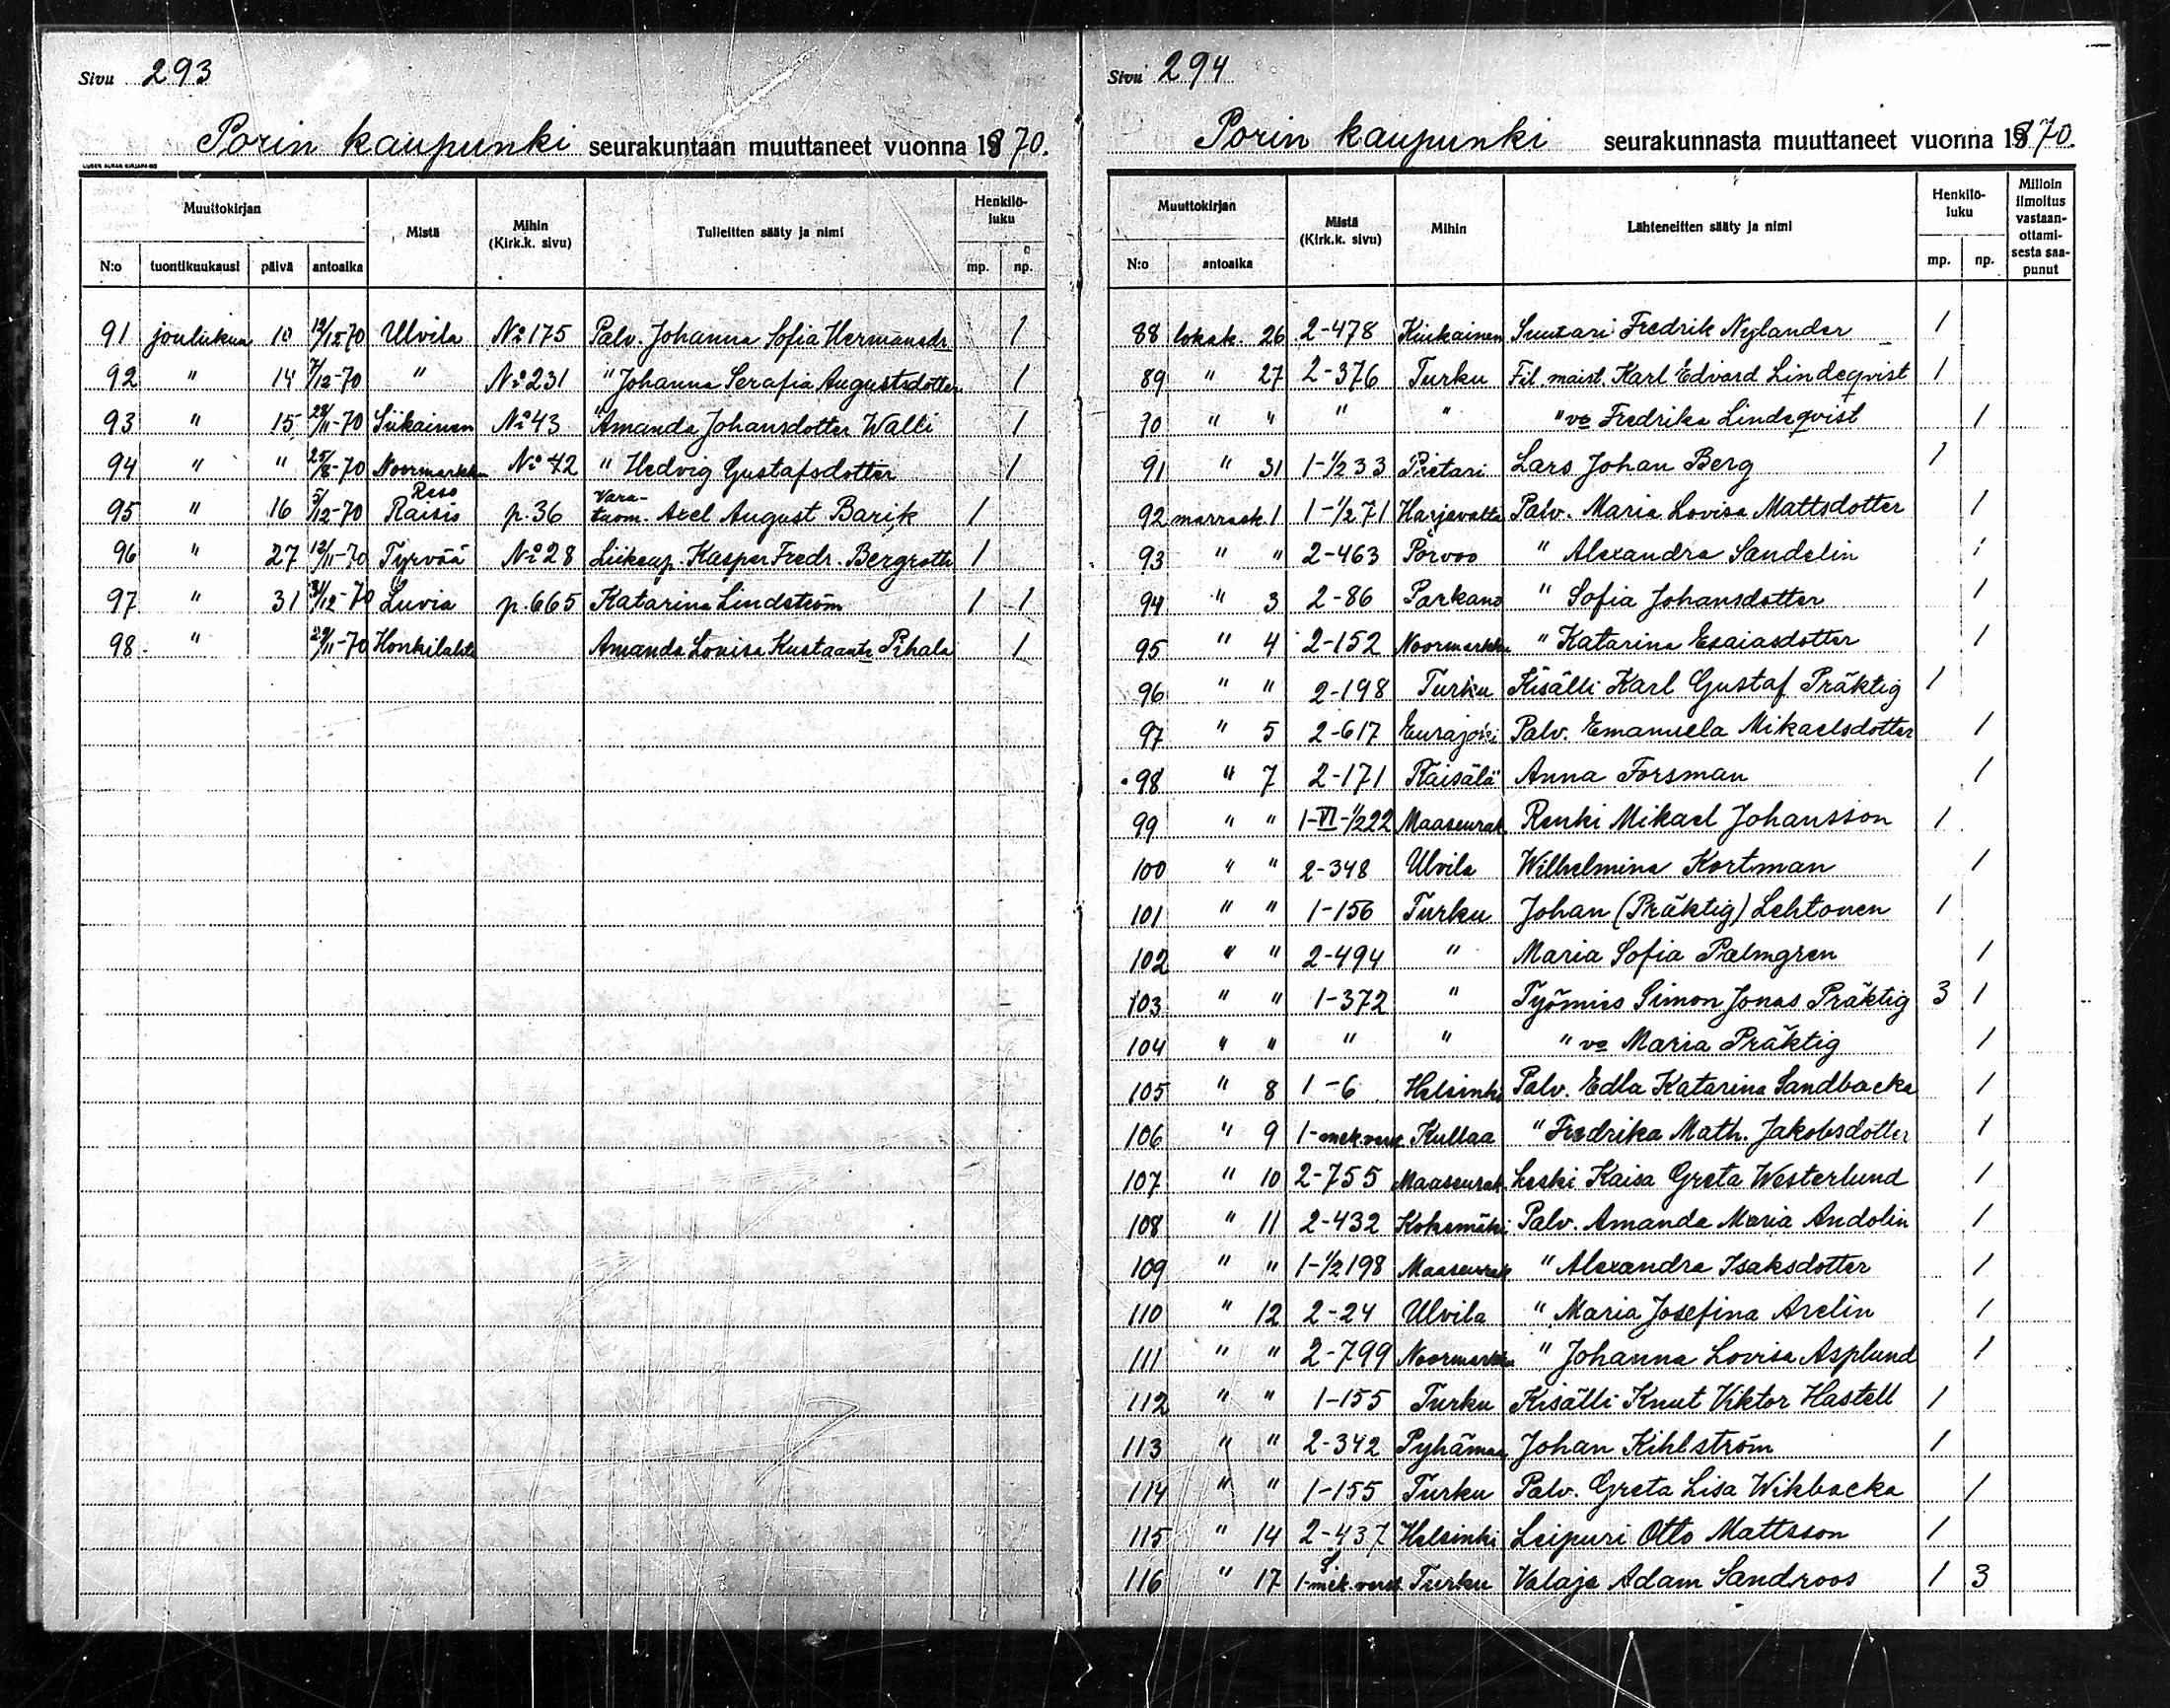 Sivu 293
Porin kaupunki seurakuntaan muuttaneet vuonna 1870.
Muuttokirjan Mistä Mihin (Kirk.k. sivu) Tulleitten sääty ja nimi Henkilö-luku
N:o tuontikuukausi päivä antoaika mp. np.
91 joulukuu 10 12/15 70 Ulvila No 175 Palv. Johanna Sofia Hermansdr 1
92 " 14 7/12-70 " No 231 " Johanna Serafia Augustsdotter 1
93 " 15 28/11-70 Siikainen No 43 " Amanda Johansdotter Walli 1
94 " " 25/8-70 Noormarkku No 42 " Hedvig Gustafsdotter 1
95 " 16 5/12-70 Reso Raisio p. 36 Vara-tuom. Axel August Barik 1
96 " 27 12/11-70 Tyrvää No 28 Liikeap. Kasper Fredr. Bergroth 1
97 " 31 31/12-70 Luvia p. 665 Katarina Lindström 1 1
98 " 29/11-70 Honkilahti Amanda Lovisa Kustaantr Pihala 1
Sivu 294
Porin kaupunki seurakunnasta muuttaneet vuonna 1870.
Muuttokirjan Mistä (Kirk.k. sivu) Mihin Lähteneitten sääty ja nimi Henkilö-luku Milloin ilmoitus vastaan-ottami-sesta saa-punut
N:o antoaika mp. np.
88 lokak. 26 2-478 Kiukainen Suutari Fredrik Nylander 1
89 " 27 2-376 Turku Fil. maist. Karl Edvard Lindeqvist 1
90 " " " " " vo Fredrika Lindeqvist 1
91 " 31 1-1/2 33 Pietari Lars Johan Berg 1
92 marrask. 1 1-1/2 71 Harjavalta Palv. Maria Lovisa Mattsdotter 1
93 " " 2-463 Porvoo " Alexandra Sandelin 1
94 " 3 2-86 Parkano " Sofia Johansdotter 1
95 " 4 2-152 Noormarkku " Katarina Esaiasdotter 1
96 " " 2-198 Turku Kisälli Karl Gustaf Präktig 1
97 " 5 2-617 Eurajoki Palv. Emanuela Mikaelsdotter 1
98 " 7 2-171 Räisälä Anna Forsman 1
99 " " 1-VI-1/2 22 Maaseurak. Renki Mikael Johansson 1
100 " " 2-348 Ulvila Wilhelmina Kortman 1
101 " " 1-156 Turku Johan (Präktig) Lehtonen 1
102 " " 2-494 " Maria Sofia Palmgren 1
103 " " 1-372 " Työmies Simon Jonas Präktig 3 1
104 " " " " " vo Maria Präktig 1
105 " 8 1-6 Helsinki Palv. Edla Katarina Sandbacka 1
106 " 9 1-mek.verst. Kullaa " Fredrika Math. Jakobsdotter 1
107 " 10 2-755 Maaseurak. Leski Kaisa Greta Westerlund 1
108 " 11 2-432 Kokemäki Palv. Amanda Maria Andolin 1
109 " " 1-1/2 198 Maaseurak " Alexandra Isaksdotter 1
110 " 12 2-24 Ulvila " Maria Josefina Arelin 1
111 " " 2-799 Noormarkku " Johanna Lovisa Asplund 1
112 " " 1-155 Turku Kisälli Knut Viktor Hastell 1
113 " " 2-342 Pyhämaa Johan Kihlström 1
114 " " 1-155 Turku Palv. Greta Lisa Wikbacka 1
115 " 14 2-437 Helsinki Leipuri Otto Mattsson 1
116 " 17 1-mek.verst. Turku Valaja Adam Sandroos 1 3